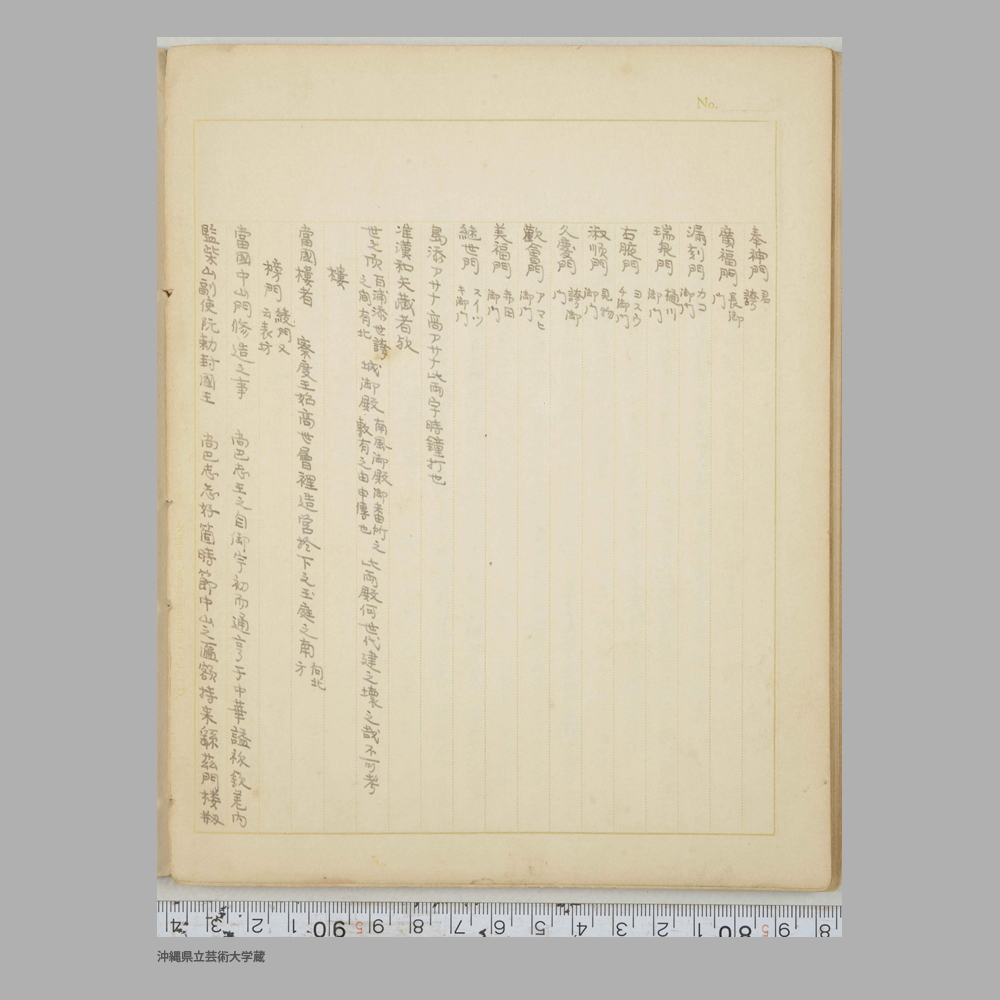 No.
奉神門 君誇
廣福門 長御門
漏刻門 カコ御門
瑞泉門 樋川御門
右腋門 ヨスウチ御門
淑順門 見物御門
久慶門 誇御門
歡會門 アマヒ御門
美福門 赤田御門
継世門 スイツキ御門
島添アサナ 高アサナ此両字時鐘打也
准漢和矢蔵者歟
世之頃 百浦添世誇之間有北 城御殿 南風御殿御番所之敷有之由申傳也 此両殿何世代建之壊之哉不可考
樓
當國樓者 察度王始高世層裡造営於下之玉庭之南方 向北
榜門 綾門又云表坊
當國中山門修造之事 尚巴志王之自御宇初而通亨于中華謚
監柴山副使阮勅封國王 尚巴志 好箇時節中山之匾額持来 茲門楼
沖縄県立芸術大学蔵